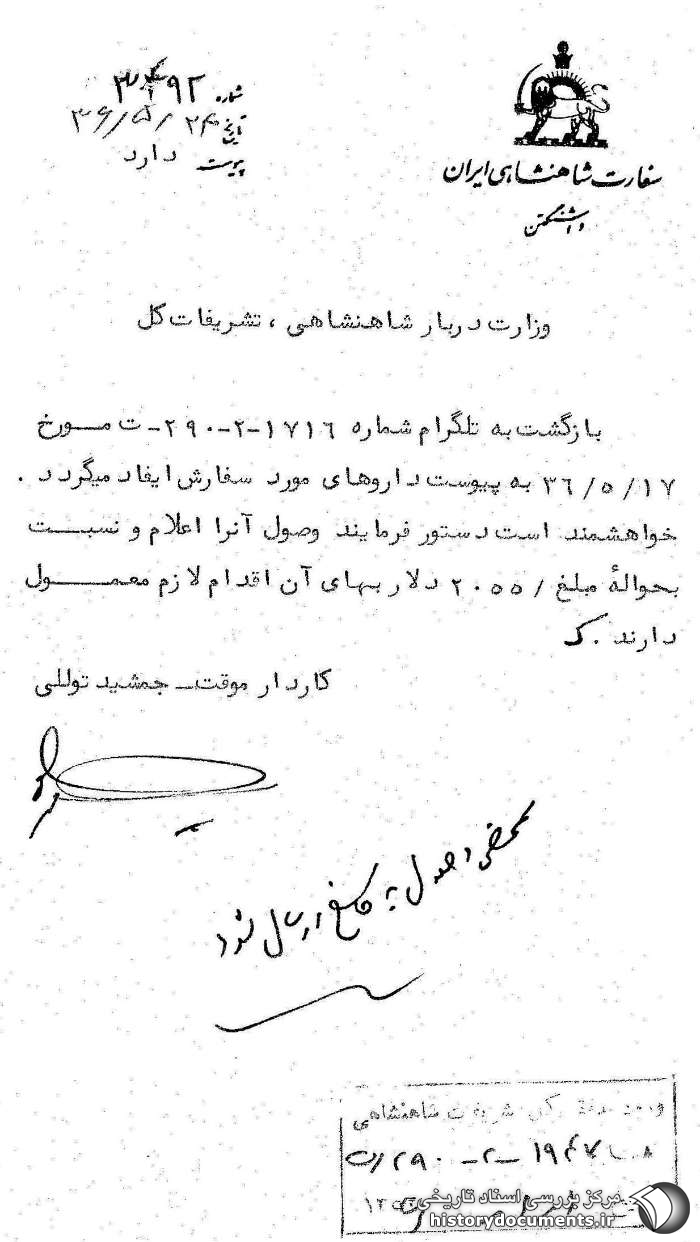 سفارت شاهنشاهی ایران
واشنگتن
شماره ۳۴۹۲
تاریخ ۳۶/۵/۲۴
پیوست دارد
وزارت دربار شاهنشاهی ، تشریفات کل
بازگشت به تلگرام شماره ۱۷۱۶-۲-۲۹۰- ت مـورخ
۳۶/۵/۱۷ به پیوست داروهای مورد سفارش ایفاد میگردد .
خواهشمند است دستور فرمایند وصول آنرا اعلام و نسبـت
بحوالهٔ مبلغ /۲۰۵۵ دلار بهای آن اقدام لازم معمـول
دارند .ک
کاردار موقت- جمشید توللی
بمحض وصول به ارسال شود
کل تشریفات شاهنشاهی
۱۹۴۷-۲-۲۹۰
مرکز بررسی اسناد تاریخی
historydocuments.ir